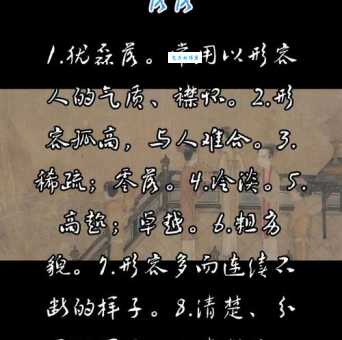 落落
1.犹磊落。常用以形容
人的气质、襟怀。2.形
容孤高，与人难合。3.
稀疏；零落。4.冷淡。5.
高超；卓越。6.粗劣
貌。7.形容多而连续不
断的样子。8.清楚、分